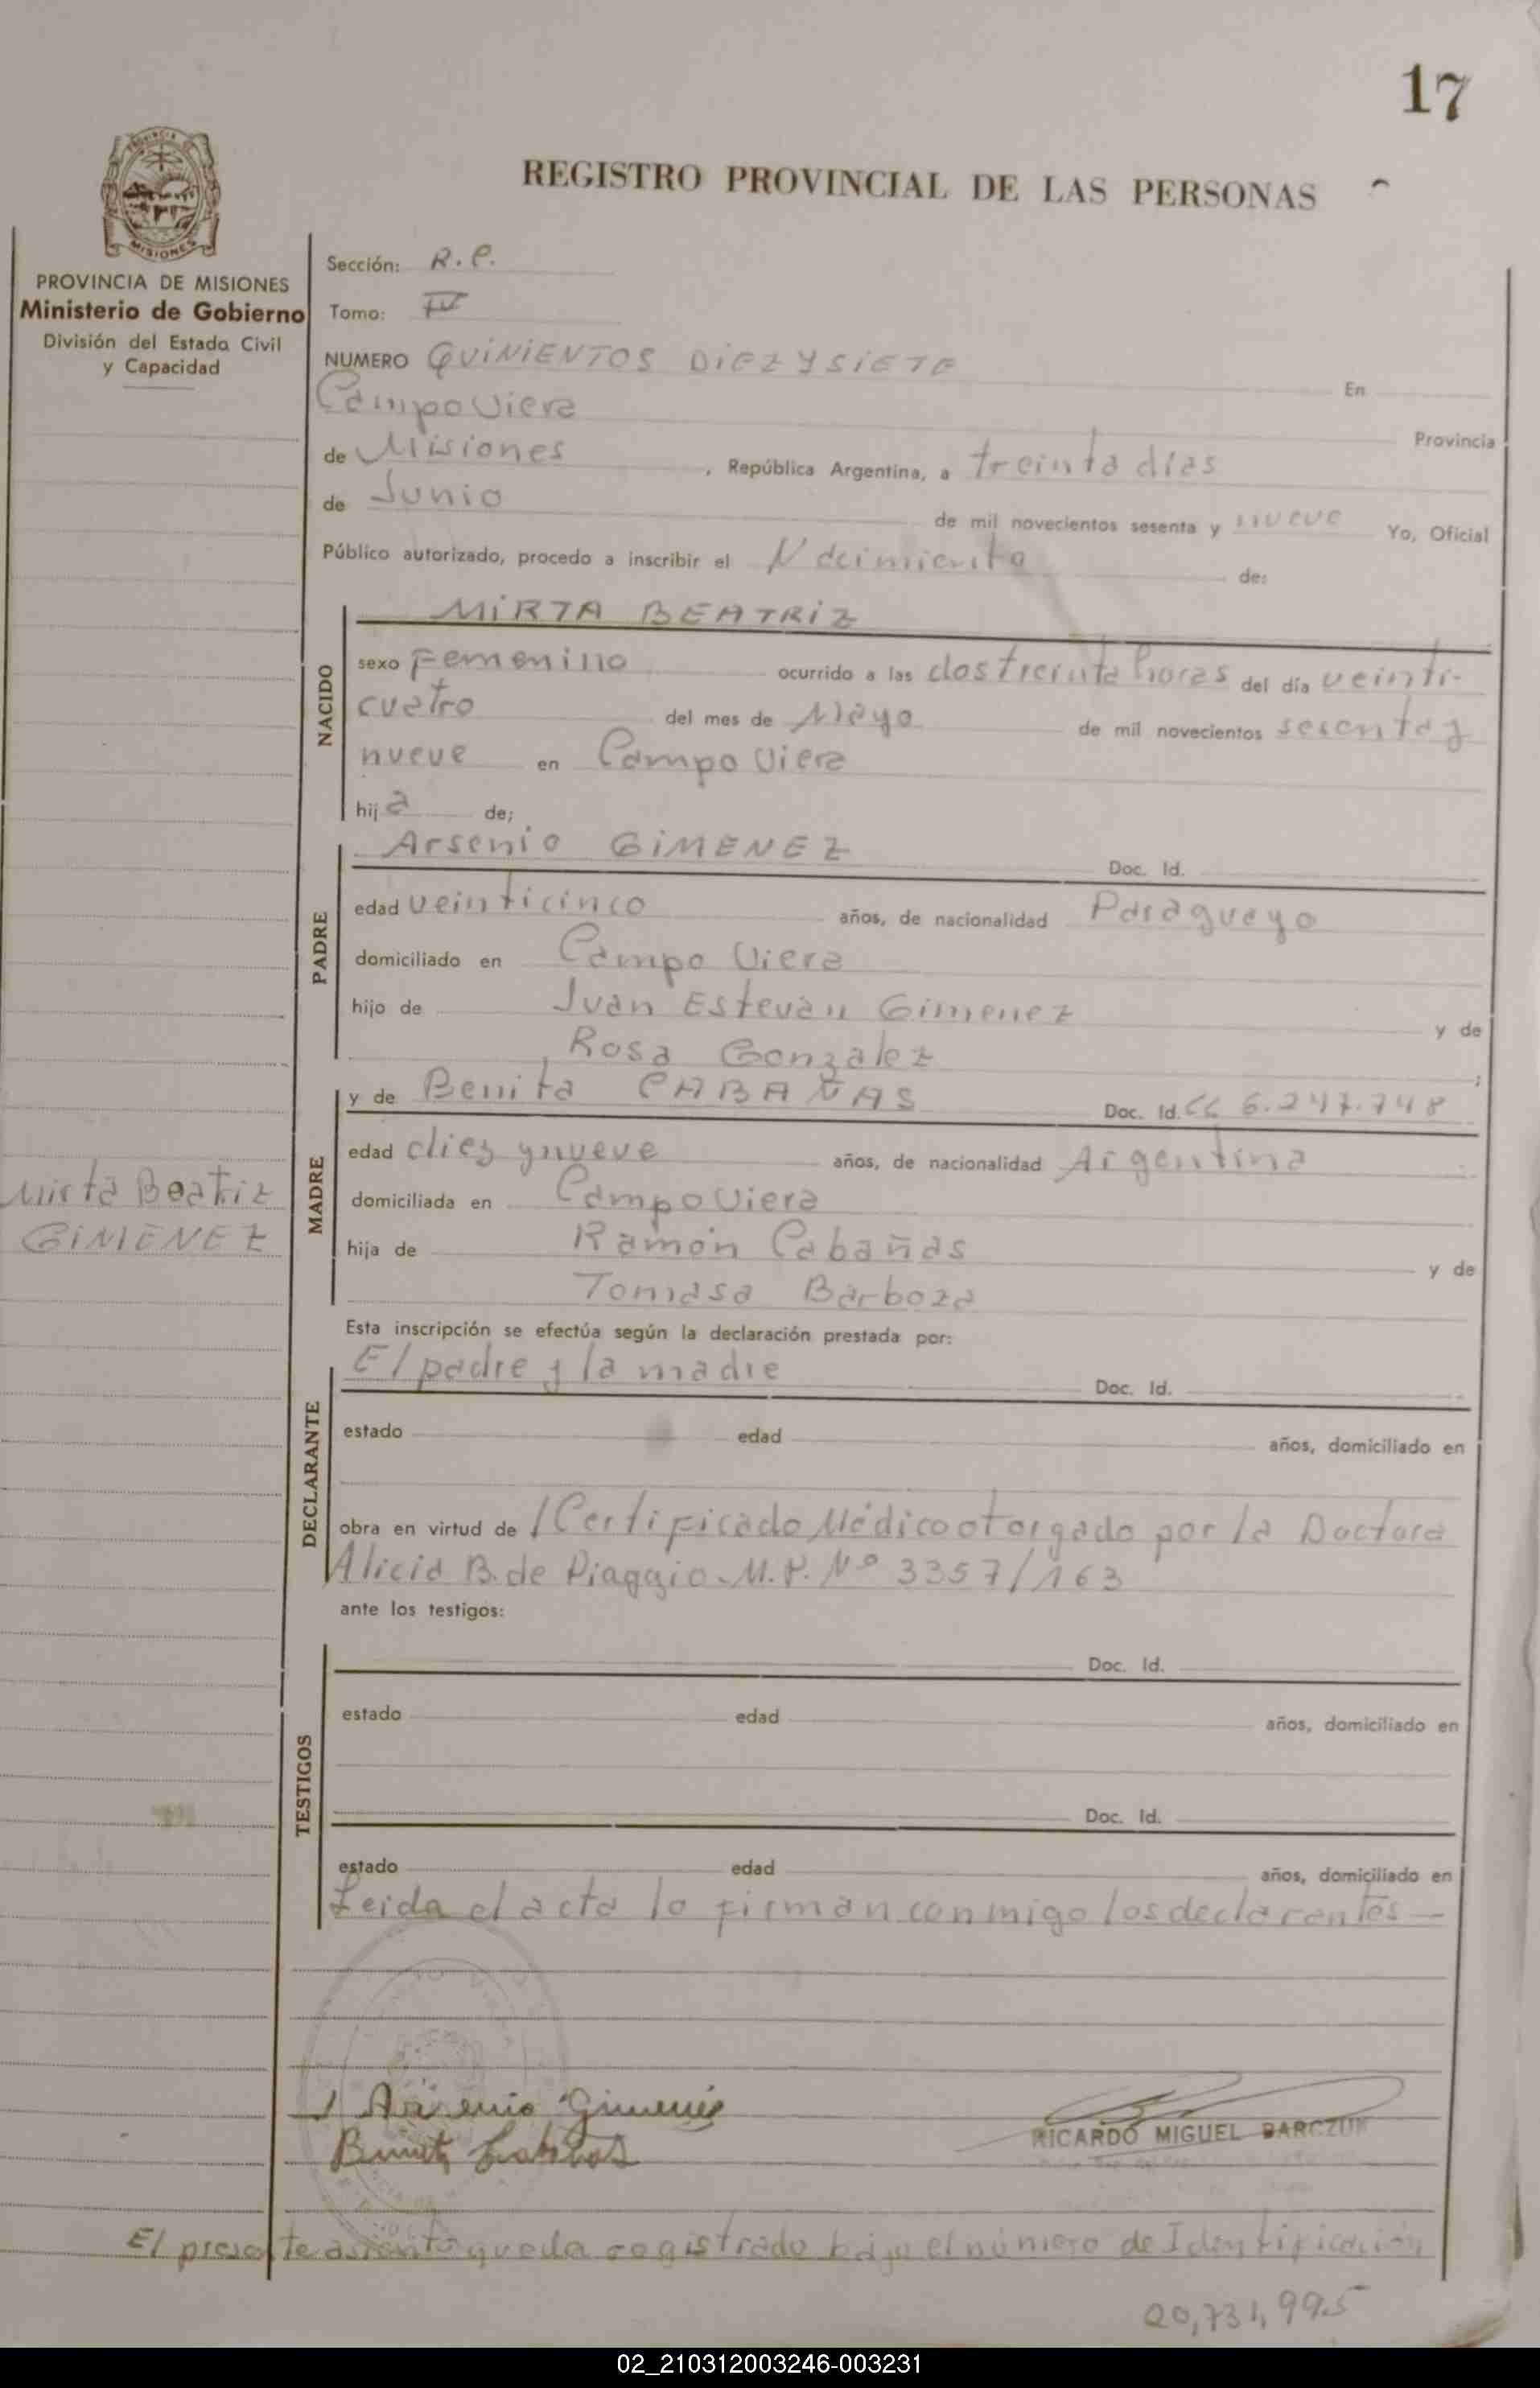 17
REGISTRO PROVINCIAL DE LAS PERSONAS
MISIONES
PROVINCIA DE MISIONES
Ministerio de Gobierno
División del Estado Civil
y Capacidad
Sección: R.C.
Tomo: IV
NUMERO QUINIENTOS DIEZ Y SIETE En
Campo Viera Provincia
de Misiones, República Argentina, a treinta días
de Junio de mil novecientos sesenta y nueve Yo, Oficial
Público autorizado, procedo a inscribir el Nacimiento de:
NACIDO
MIRTA BEATRIZ
sexo Femenino ocurrido a las dos treinta horas del día veinti-
cuatro del mes de Mayo de mil novecientos sesenta y
nueve en Campo Viera
hija de;
PADRE
Arsenio GIMENEZ Doc. Id.
edad veinticinco años, de nacionalidad Paraguayo
domiciliado en Campo Viera
hijo de Juan Estevan Gimenez y de
Rosa Gonzalez;
MADRE
y de Benita CABAÑAS Doc. Id. CC 6.247.748
edad diez y nueve años, de nacionalidad Argentina
domiciliada en Campo Viera
hija de Ramón Cabañas y de
Tomasa Barboza
Mirta Beatriz
GIMENEZ
Esta inscripción se efectúa según la declaración prestada por:
DECLARANTE
El padre y la madre Doc. Id.
estado edad años, domiciliado en
obra en virtud de 1 Certificado Médico otorgado por la Doctora
Alicia B. de Piaggio. M.P. Nº 3357/163
ante los testigos:
TESTIGOS
Doc. Id.
estado edad años, domiciliado en
Doc. Id.
estado edad años, domiciliado en
Leida el acta lo firman conmigo los declarantes
Arsenio Gimenes
RICARDO MIGUEL BARCZUK
El presente asiento queda registrado bajo el número de Identificación
20,731,995
02_210312003246-003231